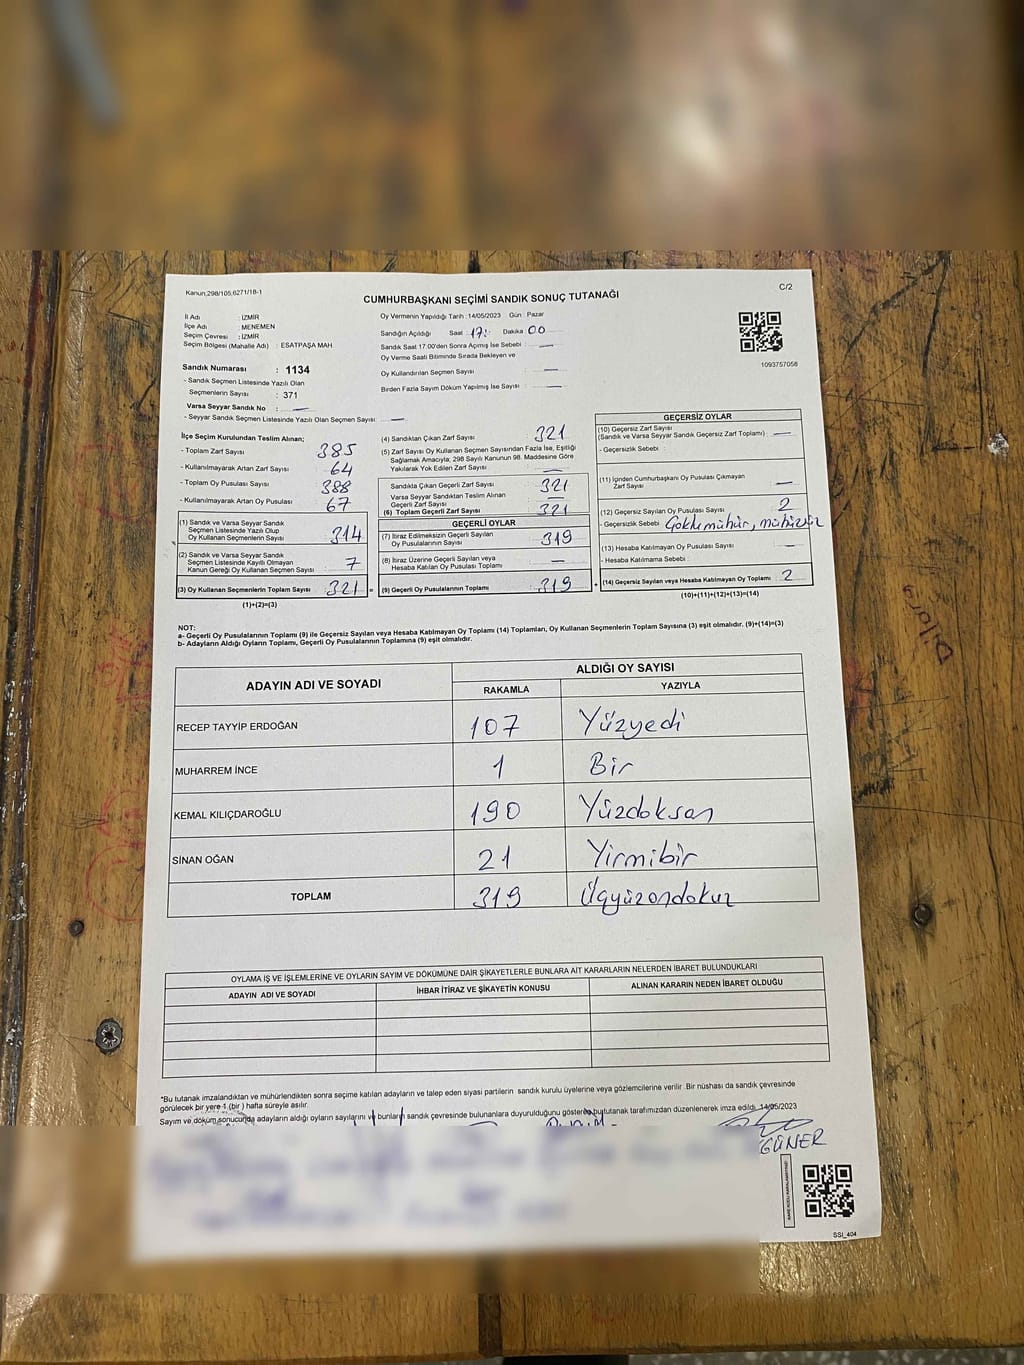 Kanun,298/105,6271/18-1
C/2
CUMHURBAŞKANI SEÇİMİ SANDIK SONUÇ TUTANAĞI
İl Adı : İZMİR
İlçe Adı : MENEMEN
Seçim Çevresi : İZMİR
Seçim Bölgesi (Mahalle Adı) : ESATPAŞA MAH.
Sandık Numarası : 1134
- Sandık Seçmen Listesinde Yazılı Olan
Seçmenlerin Sayısı : 371
Varsa Seyyar Sandık No : —
- Seyyar Sandık Seçmen Listesinde Yazılı Olan Seçmen Sayısı: —
Oy Vermenin Yapıldığı Tarih : 14/05/2023 Gün : Pazar
Sandığın Açıldığı Saat : 17: Dakika : 00
Sandık Saat 17.00'den Sonra Açmış İse Sebebi : —
Oy Verme Saati Bitiminde Sırada Bekleyen ve
Oy Kullandırılan Seçmen Sayısı : —
Birden Fazla Sayım Döküm Yapılmış İse Sayısı : —
1093757058
İlçe Seçim Kurulundan Teslim Alınan;
- Toplam Zarf Sayısı : 385
- Kullanılmayarak Artan Zarf Sayısı : 64
- Toplam Oy Pusulası Sayısı : 388
- Kullanılmayarak Artan Oy Pusulası : 67
(1) Sandık ve Varsa Seyyar Sandık
Seçmen Listesinde Yazılı Olup
Oy Kullanan Seçmenlerin Sayısı : 314
(2) Sandık ve Varsa Seyyar Sandık
Seçmen Listesinde Kayıtlı Olmayan
Kanun Gereği Oy Kullanan Seçmen Sayısı : 7
(3) Oy Kullanan Seçmenlerin Toplam Sayısı : 321 =
(1)+(2)=(3)
(4) Sandıktan Çıkan Zarf Sayısı : 321
(5) Zarf Sayısı Oy Kullanan Seçmen Sayısından Fazla İse, Eşitliği
Sağlamak Amacıyla; 298 Sayılı Kanunun 98. Maddesine Göre
Yakılarak Yok Edilen Zarf Sayısı : —
Sandıkta Çıkan Geçerli Zarf Sayısı : 321
Varsa Seyyar Sandıktan Teslim Alınan
Geçerli Zarf Sayısı : —
(6) Toplam Geçerli Zarf Sayısı : 321
GEÇERLİ OYLAR
(7) İtiraz Edilmeksizin Geçerli Sayılan
Oy Pusulalarının Sayısı : 319
(8) İtiraz Üzerine Geçerli Sayılan veya
Hesaba Katılan Oy Pusulası Toplamı : —
(9) Geçerli Oy Pusulalarının Toplamı : 319 +
GEÇERSİZ OYLAR
(10) Geçersiz Zarf Sayısı
(Sandık ve Varsa Seyyar Sandık Geçersiz Zarf Toplamı) : —
- Geçersizlik Sebebi :
(11) İçinden Cumhurbaşkanı Oy Pusulası Çıkmayan
Zarf Sayısı : —
(12) Geçersiz Sayılan Oy Pusulası Sayısı : 2
- Geçersizlik Sebebi : Çoklu mühür, mühürsüz
(13) Hesaba Katılmayan Oy Pusulası Sayısı : —
- Hesaba Katılmama Sebebi :
(14) Geçersiz Sayılan veya Hesaba Katılmayan Oy Toplamı : 2
(10)+(11)+(12)+(13)=(14)
NOT:
a- Geçerli Oy Pusulalarının Toplamı (9) ile Geçersiz Sayılan veya Hesaba Katılmayan Oy Toplamı (14) Toplamları, Oy Kullanan Seçmenlerin Toplam Sayısına (3) eşit olmalıdır. (9)+(14)=(3)
b- Adayların Aldığı Oyların Toplamı, Geçerli Oy Pusulalarının Toplamına (9) eşit olmalıdır.
ADAYIN ADI VE SOYADI
ALDIĞI OY SAYISI
RAKAMLA YAZIYLA
RECEP TAYYİP ERDOĞAN 107 Yüzyedi
MUHARREM İNCE 1 Bir
KEMAL KILIÇDAROĞLU 190 Yüzdoksan
SİNAN OĞAN 21 Yirmibir
TOPLAM 319 Üçyüzondokuz
OYLAMA İŞ VE İŞLEMLERİNE VE OYLARIN SAYIM VE DÖKÜMÜNE DAİR ŞİKAYETLERLE BUNLARA AİT KARARLARIN NELERDEN İBARET BULUNDUKLARI
ADAYIN ADI VE SOYADI İHBAR İTİRAZ VE ŞİKAYETİN KONUSU ALINAN KARARIN NEDEN İBARET OLDUĞU
*Bu tutanak imzalandıktan ve mühürlendikten sonra seçime katılan adayların ve talep eden siyasi partilerin sandık kurulu üyelerine veya gözlemcilerine verilir. Bir nüshası da sandık çevresinde
görülecek bir yere 1 (bir ) hafta süreyle asılır.
Sayım ve döküm sonucunda adayların aldığı oyların sayılarını ve bunların sandık çevresinde bulunanlara duyurulduğunu gösteren bu tutanak tarafımızdan düzenlenerek imza edildi. 14/05/2023
GÜNER
SSI_404